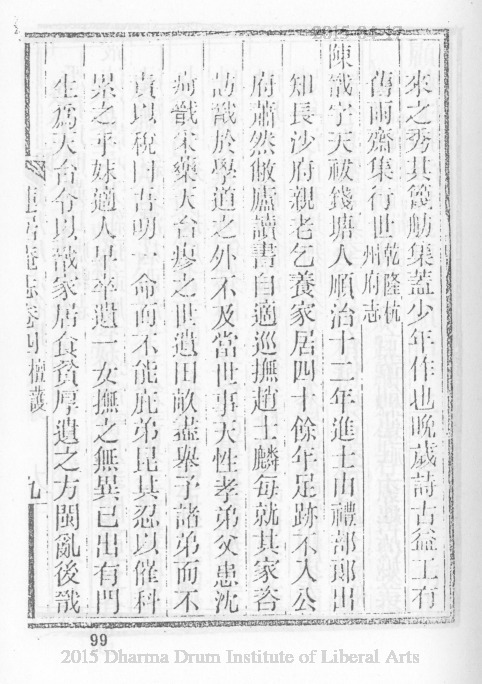 來之秀其篋舫集蓋少年作也晚歲詩古益工有
舊雨齋集行世乾隆杭州府志
陳戩字天祓錢塘人順治十二年進士由禮部郎出
知長沙府親老乞養家居四十餘年足跡不入公
府蕭然敝廬讀書自適巡撫趙士麟每就其家咨
訪戩於學道之外不及當世事天性孝弟父患沈
疴戩宋藥大台瘳之世遺田畝盡舉予諸弟而不
責以稅曰吾叨一命而不能庇弟昆其忍以催科
累之乎妹適人早卒遺一女撫之無異己出有門
生爲天台令以戩家居食貧厚遺之方閩亂後戩
蓮居庵志卷四檀護
九
99
2015 Dharma Drum Institute of Liberal Arts